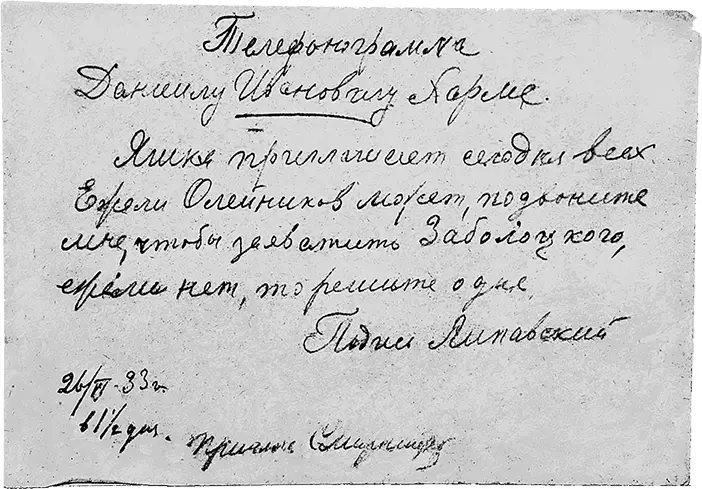 Телефонограмма
Даниилу Ивановичу Хармс.
Яшка приглашает сегодня всех.
Ежели Олейников может, подвоните
мне, чтобы захватить Заболоцкого,
ежели нет, то решите о дне
Подпис Липавский
26/ 33 г.
в 1 1/2 дня. приняла